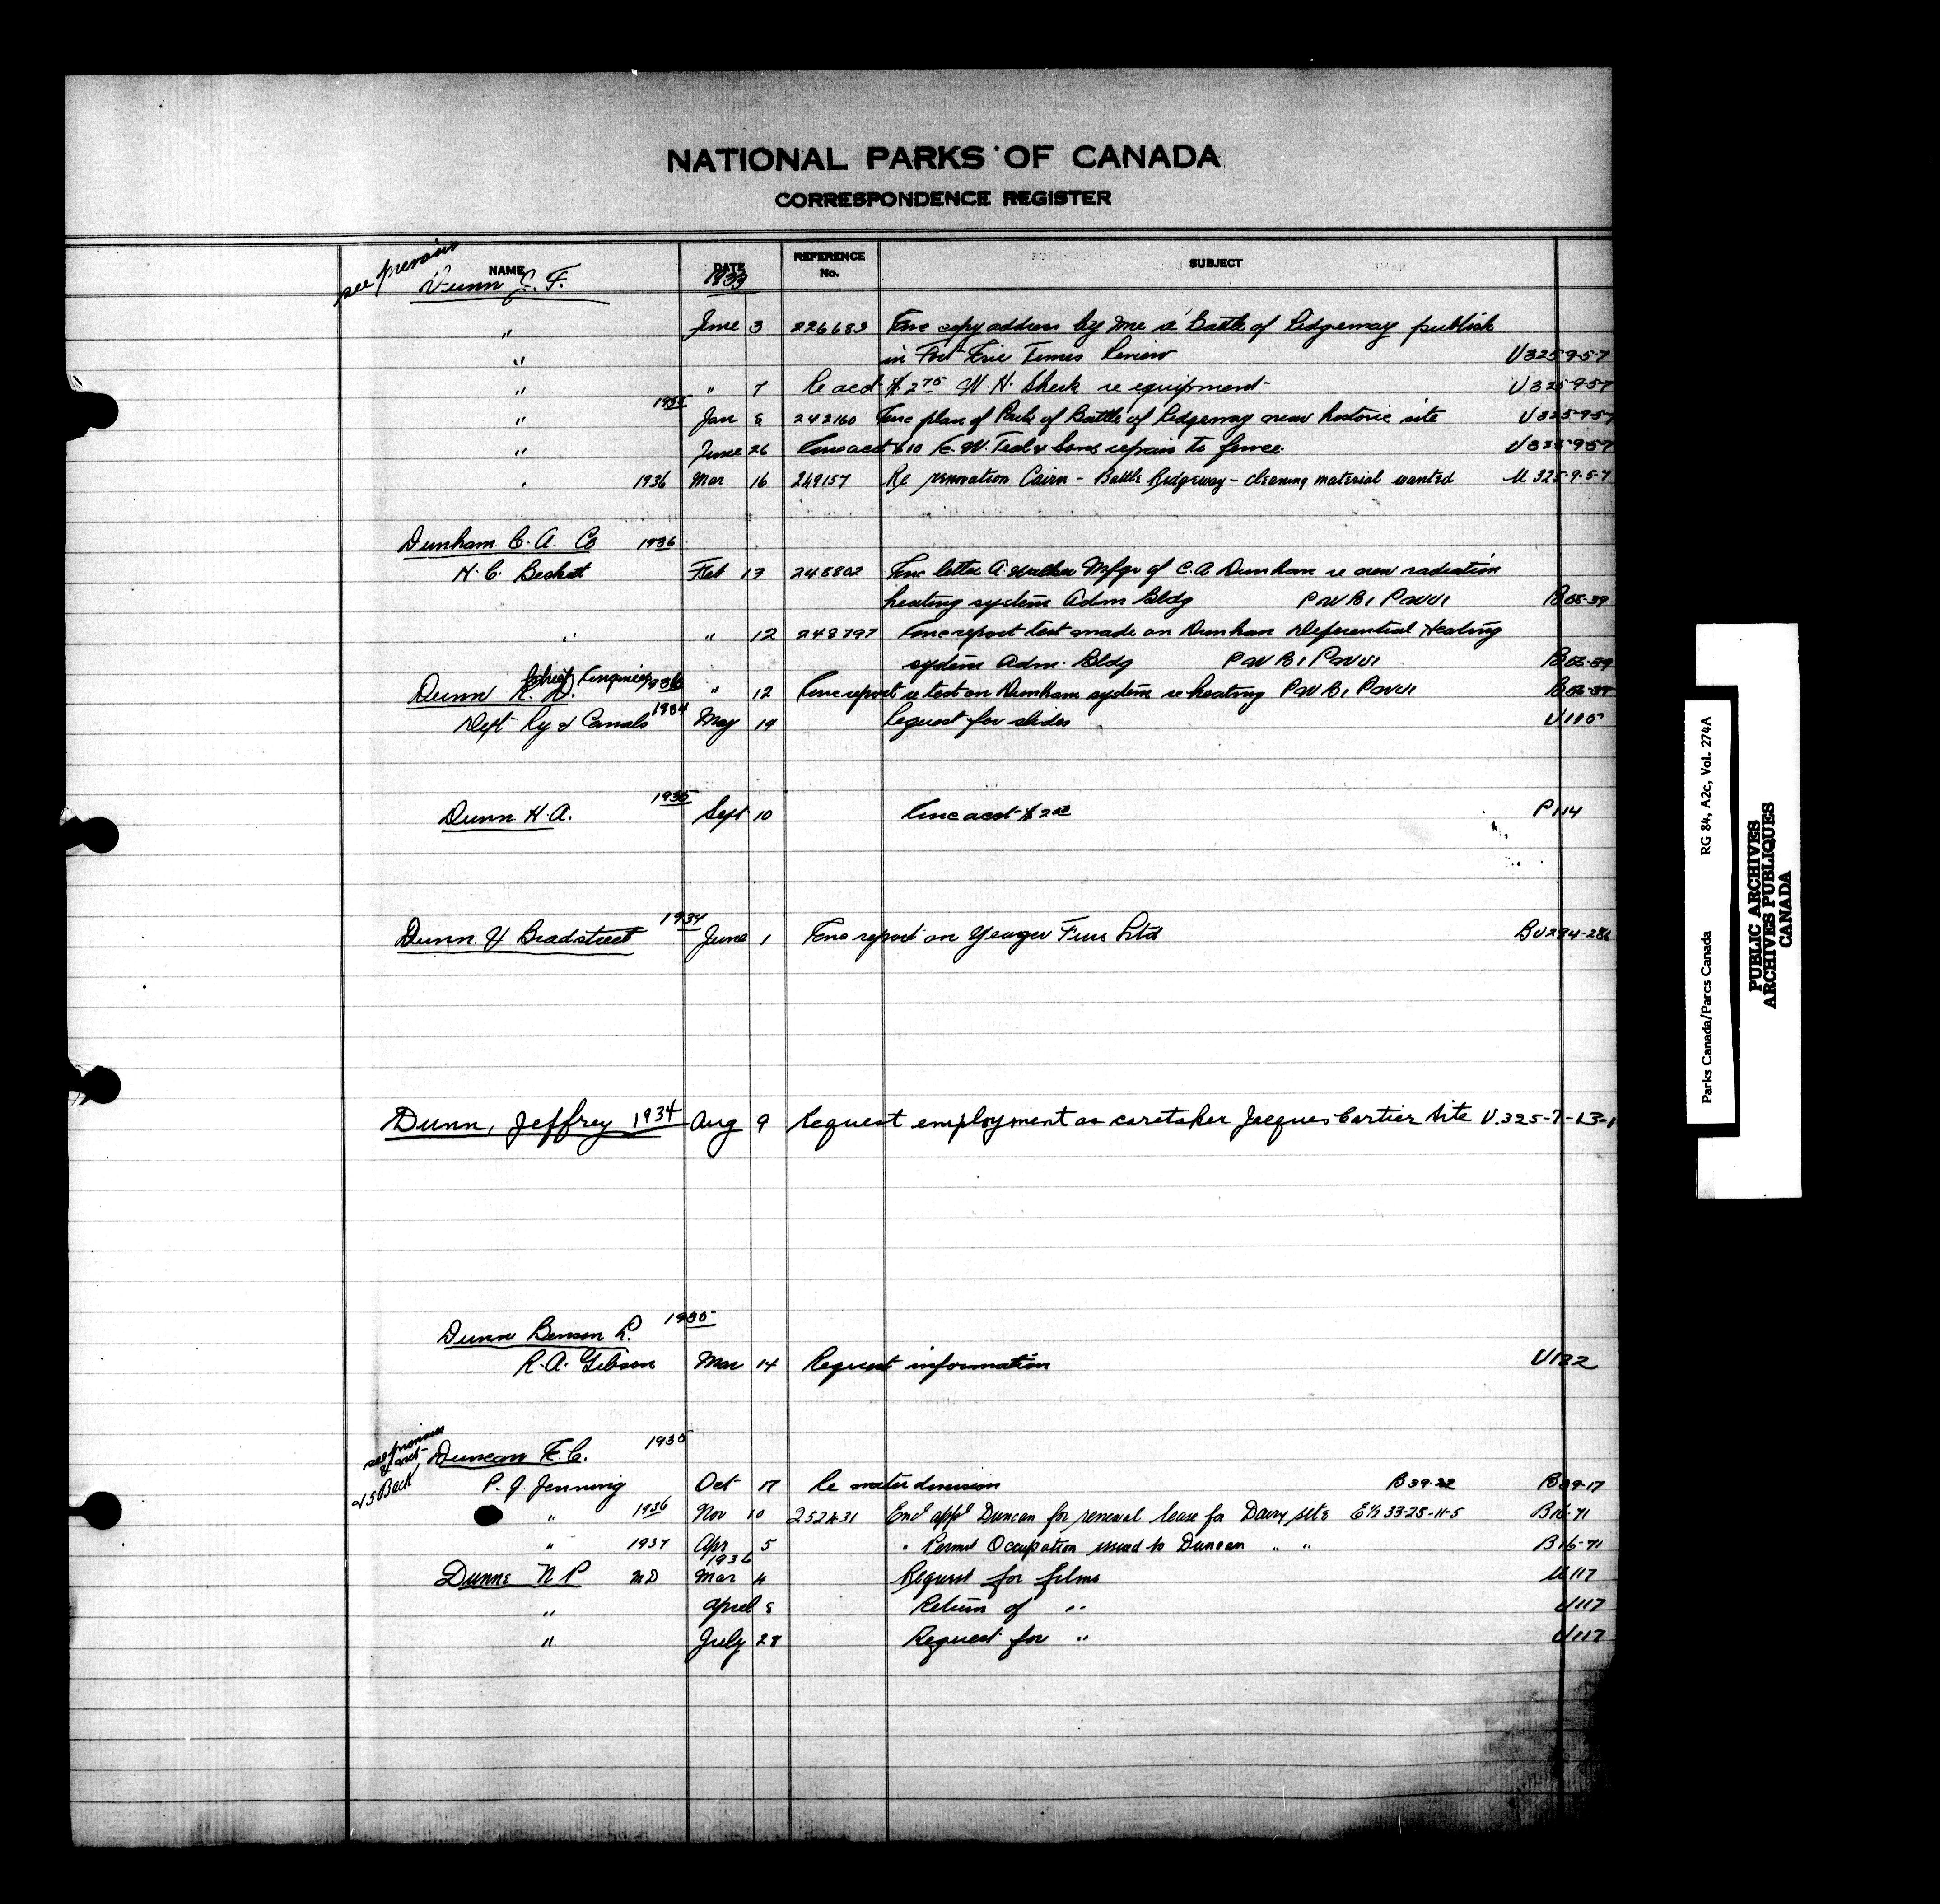 NATIONAL PARKS OF CANADA
CORRESPONDENCE REGISTER
NAME DATE REFERENCE No. SUBJECT
see previous
Dunn E. F. 1933
" June 3 226683 Enc copy address by me re Battle of Ridgeway publish
" in Fort Erie Times Review U325-9-5-7
" " 7 Re acct $2.75 W. H. Sherk re equipment U325-9-5-7
" 1935 Jan 8 242160 Enc plan of Park of Battle of Ridgeway near historic site U325-9-5-7
" June 26 Enc acct $10 E. W. Teal & Sons repairs to fence. U325-9-5-7
" 1936 Mar 16 249157 Re renovation Cairn - Battle Ridgeway - cleaning material wanted U 325-9-5-7
Dunham C. A. Co 1936
H. C. Beckett Feb 13 248802 Enc letter A. Walker Mfgr of C.A Dunham re new radiation
heating system Adm Bldg PWB1 PWU1
" " 12 248797 Enc report test made on Dunham Deferential Heating
system Adm. Bldg PWB1 PWU1
Chief Engineer 1936
Dunn R. D. " 12 Enc report re test on Dunham system re heating PWB1 PWU1
Dept Ry & Canals 1934 May 14 Request for slides U115
Dunn H. A. 1935 Sept 10 Enc acct $2 P114
Dunn & Bradstreet 1934 June 1 Enc report on Yeager Furs Ltd BU294-286
Dunn, Jeffrey 1934 Aug 9 Request employment as caretaker Jacques Cartier Site U.325-7-13-1
Dunn Benson L. 1935
R. A. Gibson Mar 14 Request information U122
see previous
Duncan E. C. 1935
& 5 Back
P. J. Jenning Oct 17 Re water B39-22 B39-17
" 1936 Nov 10 252431 Encl appl Duncan for renewal lease for Dairy site E½ 33-25-11-5 B16-71
" 1937 Apr 5 " Permit Occupation issued to Duncan " " B16-71
Dunne N P MD 1936 Mar 4 Request for films U117
" April 8 Return of " U117
" July 28 Request for " U117
Parks Canada/Parcs Canada RG 84, A2c, Vol. 274A
PUBLIC ARCHIVES
ARCHIVES PUBLIQUES
CANADA